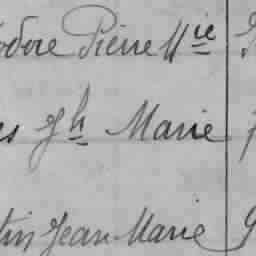 odore Pierre Mie
es Jh Marie
tin Jean Marie